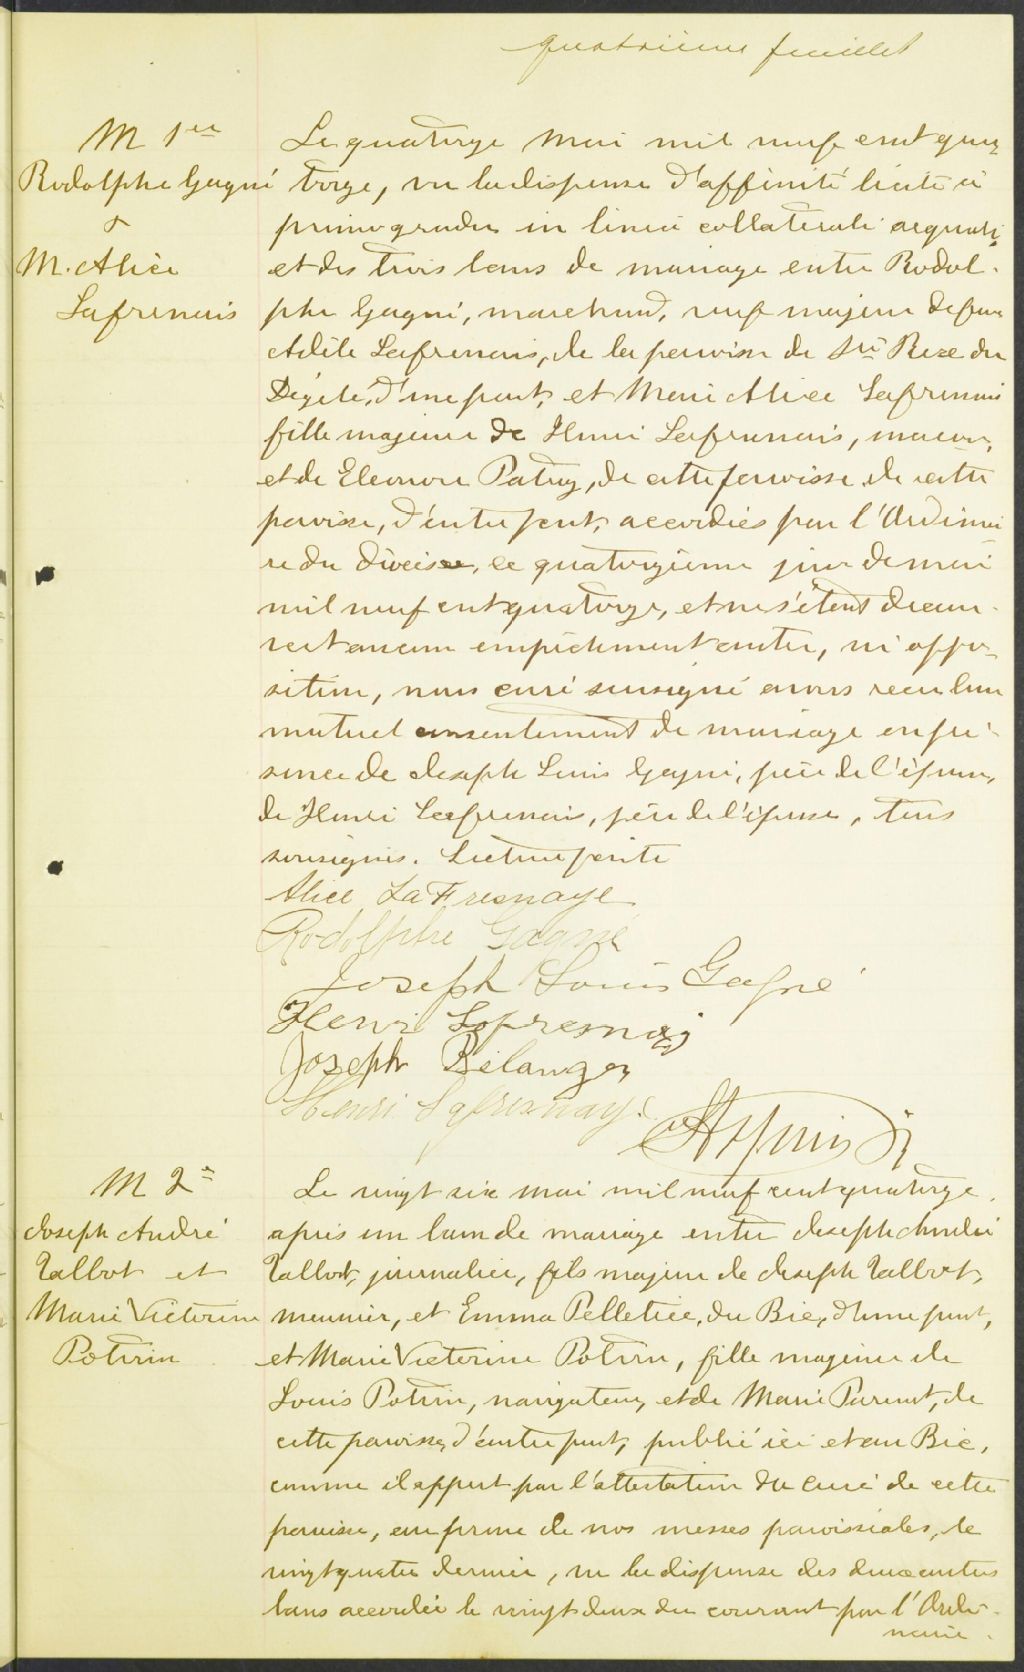 quatrième feuillet
M 1er
Rodolphe Gagné
&
M. Alice
Lafrenais
Le quatorze mai mil neuf cent qua
torze, vu la dispense d'affinité licite in
primo gradu in linea collaterali aequali,
et des trois bans de mariage entre Rodol-
phe Gagné, marchand, veuf majeur de feue
Adèle Lafrenais, de la paroisse de Ste Rose du
Dégelé, d'une part, et Marie Alice Lafrenais
fille majeure de Henri Lafrenais,
et de Eleonore Patry, de cette paroisse de cette
paroisse, d'autre part, accordées par l'Ordinai
re du diocèse, ce quatorzième jour de mai
mil neuf cent quatorze, et ne s'étant décou-
vert aucun empêchement autre, ni oppo-
sition, nous curé soussigné avons reçu leur
mutuel consentement de mariage en pré-
sence de Joseph Louis Gagné, père de l'époux,
de Henri Lafrenais, père de l'épouse, tous
soussignés. Lecture faite
Alice LaFresnaye
Rodolphe Gagné
Joseph Louis Gagné
Henri Lafresnay
Joseph Bélanger
Henri Lafresnaye
M 2e
Joseph André
Talbot et
Marie Victorine
Potvin
Le vingt six mai mil neuf cent quatorze,
après un ban de mariage entre Joseph André
Talbot, journalier, fils majeur de Joseph Talbot,
meunier, et Emma Pelletier, du Bic, d'une part,
et Marie Victorine Potvin, fille majeure de
Louis Potvin, navigateur, et de Marie Parent, de
cette paroisse, d'autre part, publié ici et au Bic,
comme il appert par l'attestation du curé de cette
paroisse, au prône de nos messes paroissiales, le
vingt quatre dernier, vu la dispense des deux autres
bans accordée le vingt deux du courant par l'Ordi-
naire